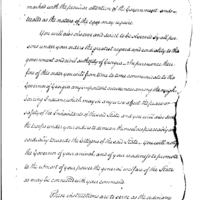 marked with the peculiar attention of the Government and
results as the nature of the case may require.
You will also observe and desire to be observed by all per-
sons under your orders the greatest regard and cordiality to the
government and civil authority of Georgia
of this order you will from time to time communicate to the
Governor of Georgia any important occurrences among the
having Indians which may in any wise affect the peace or
safety of the Inhabitants of the said State and you will also
the troops under your orders to
conducing towards the Citizens of the said State. You will notify
the Governor of your arrival, and of your readiness to promote
to the utmost of your power the general welfare of the State
as may be committed to your command
These instructions are to serve as the